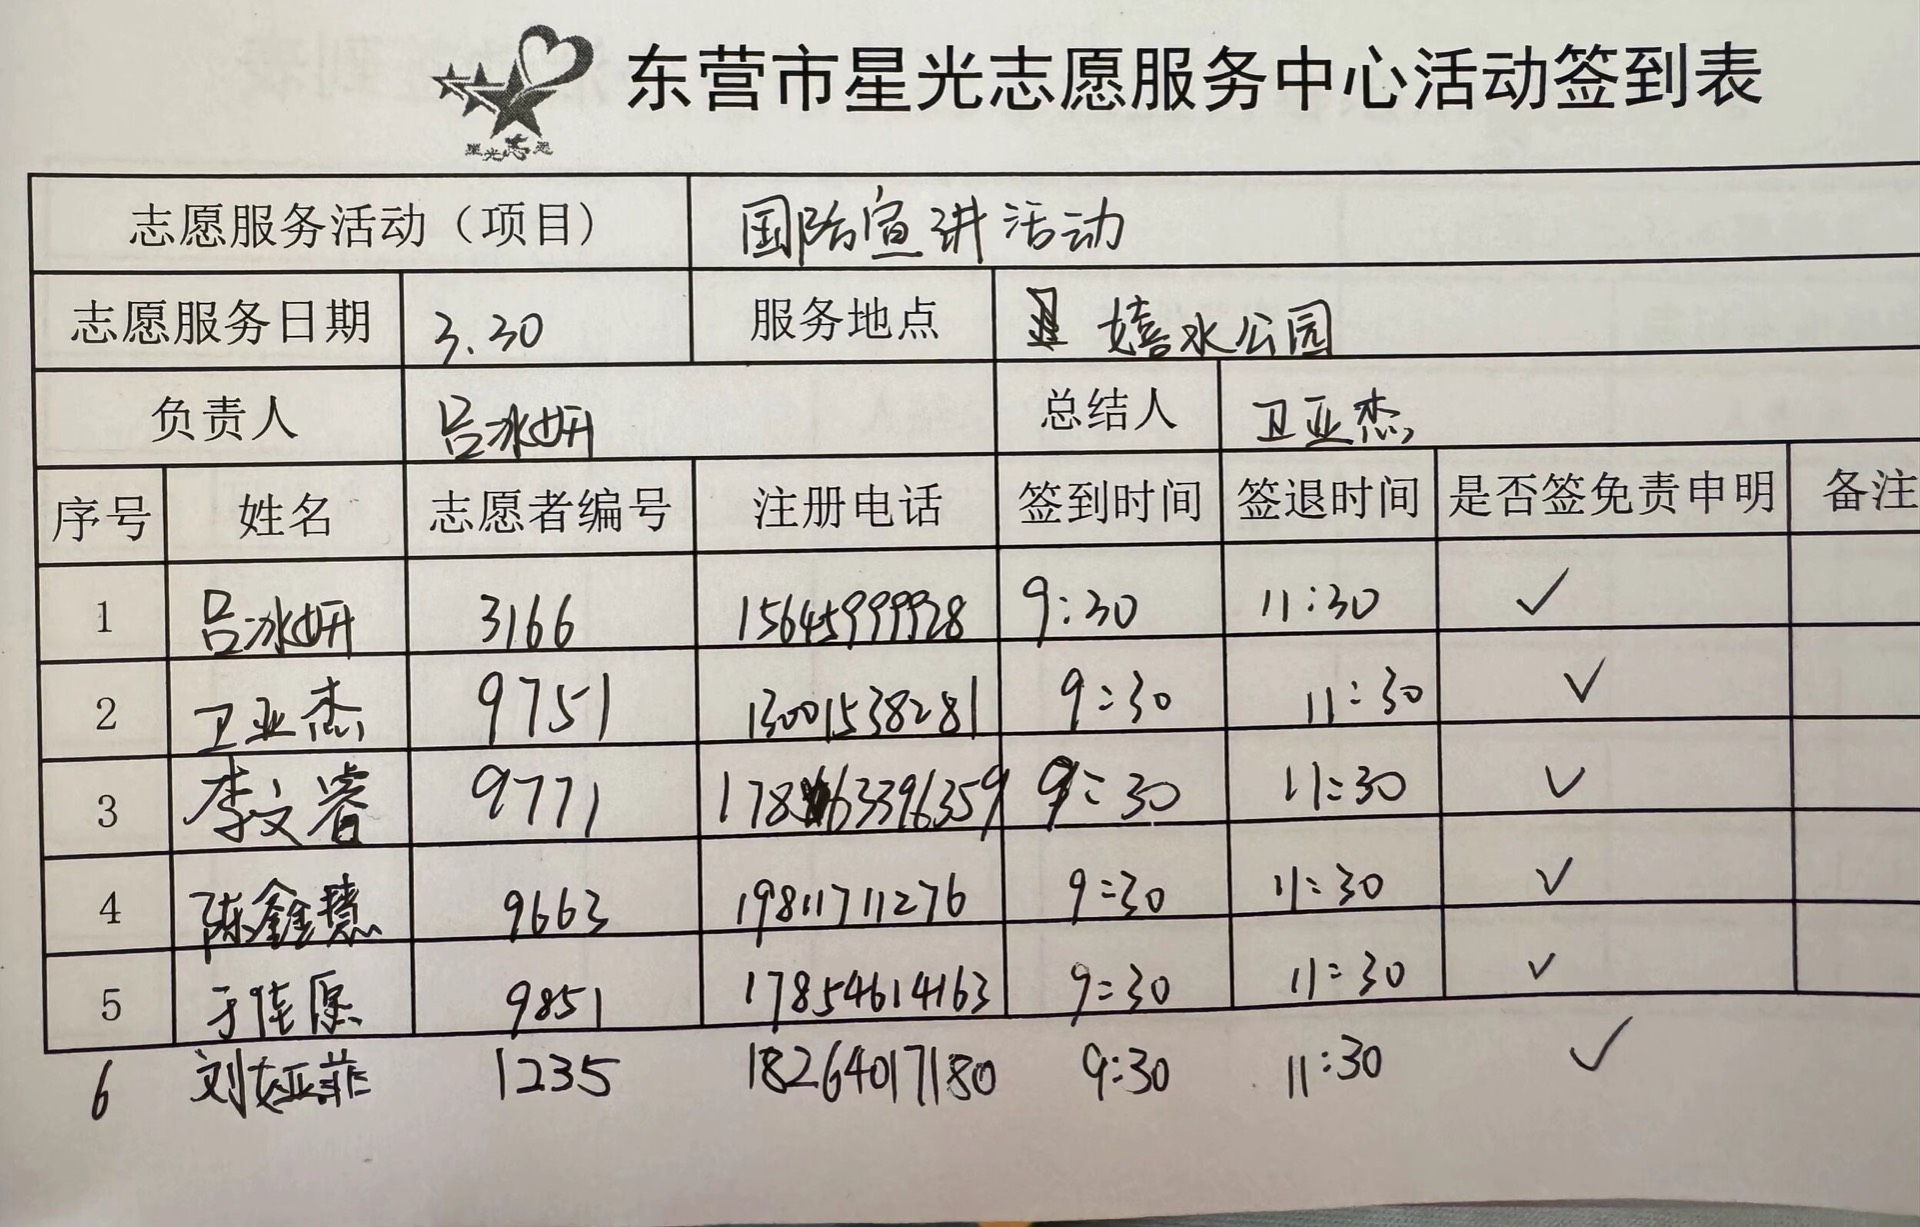 星光志愿
东营市星光志愿服务中心活动签到表
志愿服务活动（项目） 国防宣讲活动
志愿服务日期 3.30 服务地点 嬉水公园
负责人 吕冰妍 总结人 卫亚杰
序号 姓名 志愿者编号 注册电话 签到时间 签退时间 是否签免责申明 备注
1 吕冰妍 3166 15645999928 9:30 11:30 ✓
2 卫亚杰 9751 13001538281 9:30 11:30 ✓
3 李文睿 9771 17863396359 9:30 11:30 ✓
4 陈鑫慧 9663 19811711276 9:30 11:30 ✓
5 于佳愿 9851 17854614163 9:30 11:30 ✓
6 刘娅菲 1235 18264017180 9:30 11:30 ✓